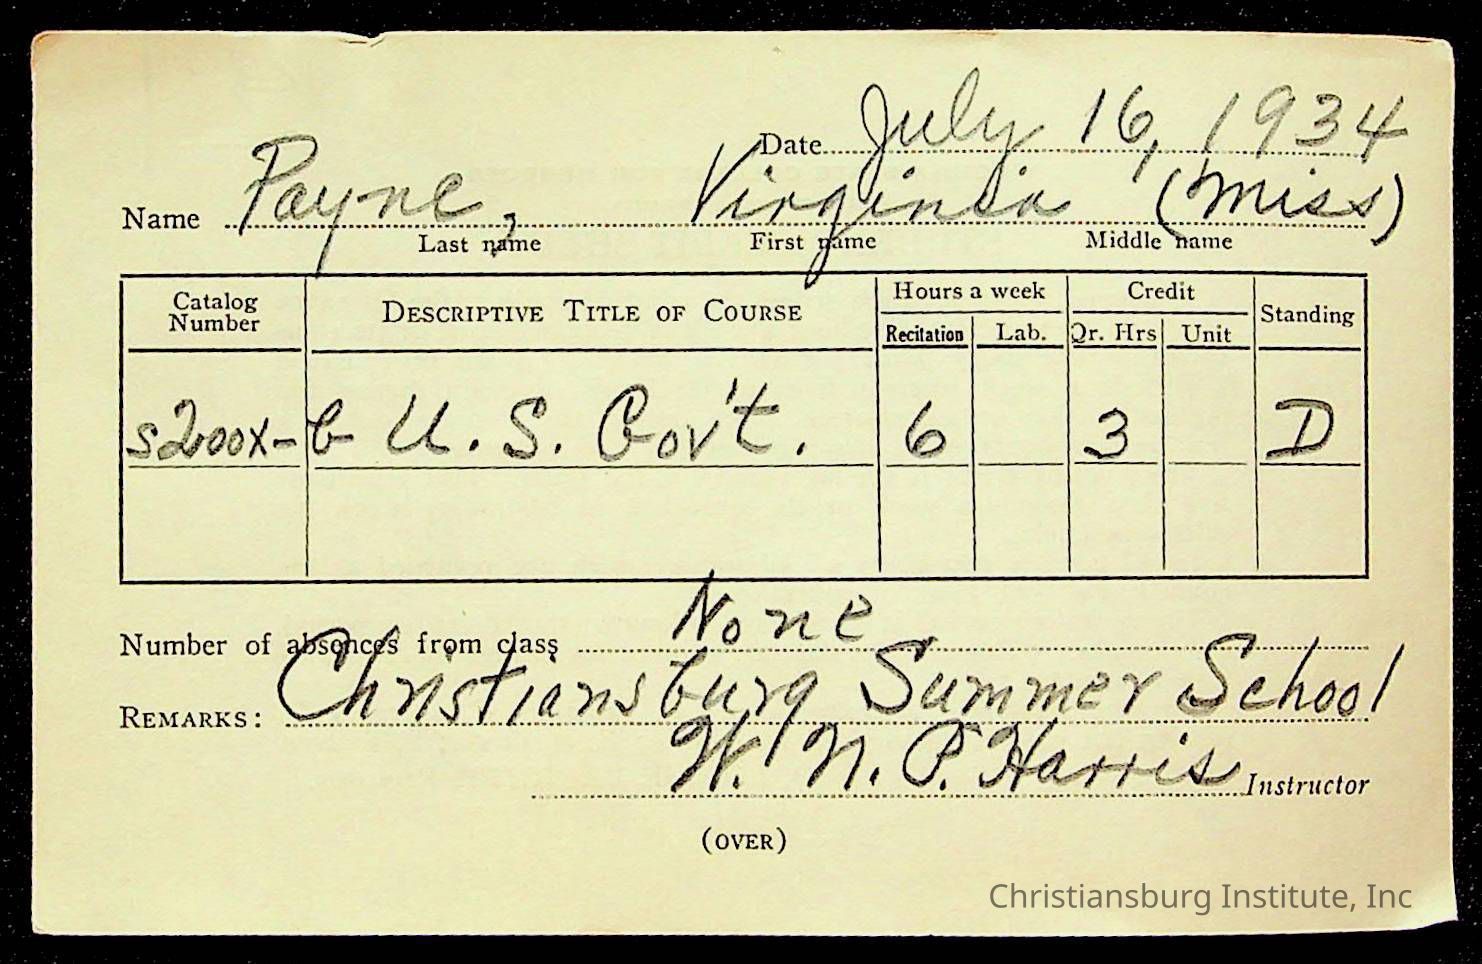 Date July 16, 1934
Name Payne, Virginia (Miss)
Last name First name Middle name
Catalog Number DESCRIPTIVE TITLE OF COURSE Hours a week Credit Standing
Recitation Lab. Qr. Hrs Unit
s2000x-b U. S. Gov't. 6 3 D
Number of absences from class None
REMARKS: Christiansburg Summer School
W. N. P. Harris Instructor
(OVER)
Christiansburg Institute, Inc